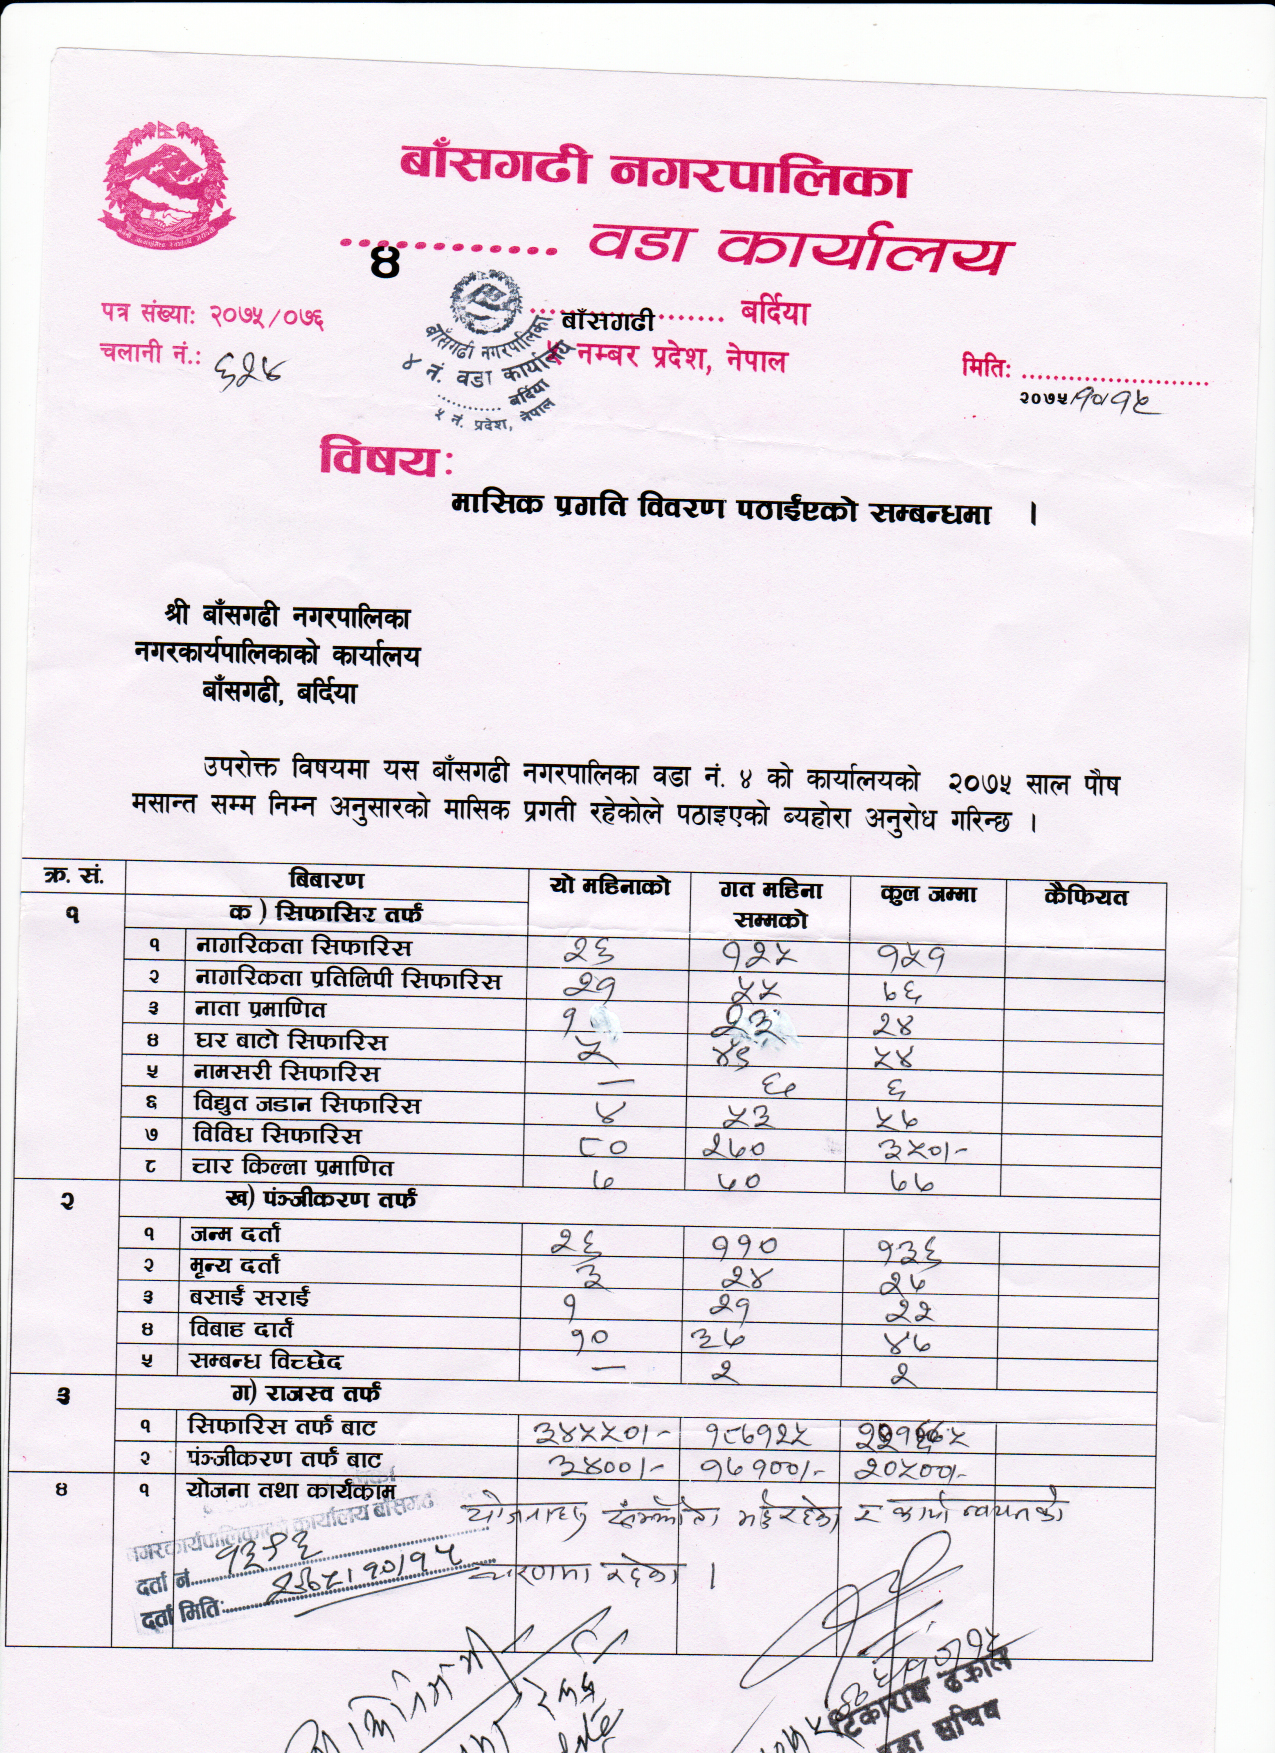 बाँसगढी नगरपालिका
४ ............ वडा कार्यालय
बाँसगढी बर्दिया
५ नम्बर प्रदेश, नेपाल
पत्र संख्याः २०७५/०७६
चलानी नं.: ६२४
मितिः ........................
२०७५/१०/१५
बाँसगढी नगरपालिका
४ नं. वडा कार्यालय
बर्दिया
५ नं. प्रदेश, नेपाल
विषयः
मासिक प्रगति विवरण पठाईएको सम्बन्धमा ।
श्री बाँसगढी नगरपालिका
नगरकार्यपालिकाको कार्यालय
बाँसगढी, बर्दिया
उपरोक्त विषयमा यस बाँसगढी नगरपालिका वडा नं. ४ को कार्यालयको २०७५ साल पौष
मसान्त सम्म निम्न अनुसारको मासिक प्रगती रहेकोले पठाइएको ब्यहोरा अनुरोध गरिन्छ ।
क्र. सं. बिबारण यो महिनाको गत महिना सम्मको कुल जम्मा कैफियत
१ क ) सिफासिर तर्फ
१ नागरिकता सिफारिस २६ १२५ १५१
२ नागरिकता प्रतिलिपी सिफारिस २१ ५५ ७६
३ नाता प्रमाणित १ २३ २४
४ घर बाटो सिफारिस ५ ४९ ५४
५ नामसरी सिफारिस — ६ ६
६ विद्युत जडान सिफारिस ४ ५३ ५७
७ विविध सिफारिस ८० २७० ३५०/-
८ चार किल्ला प्रमाणित ७ ७० ७७
२ ख) पंञ्जीकरण तर्फ
१ जन्म दर्ता २६ ११० १३६
२ मृन्य दर्ता ३ २४ २७
३ बसाई सराई १ २१ २२
४ विबाह दार्त १० ३७ ४७
५ सम्बन्ध विच्छेद — २ २
३ ग) राजस्व तर्फ
१ सिफारिस तर्फ बाट ३४५५०/- १८७१२५
२ पंञ्जीकरण तर्फ बाट ३४००/- १७१००/- २०५००/-
४ १ योजना तथा कार्यक्राम
योजनाहरु सम्झौता भईरहेको र कार्यान्वयनको
चरणमा रहेको ।
नगरकार्यपालिकाको कार्यालय बाँसगढी
दर्ता नं.
दर्ता मितिः २०७५/१०/१५
टिकाराम ढकाल
वडा सचिव